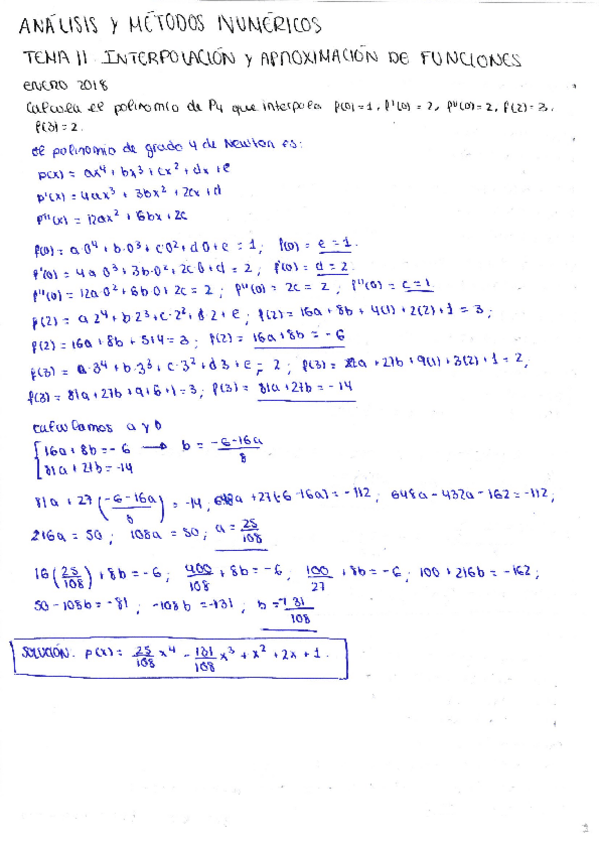 ANÁLISIS Y MÉTODOS NUMÉRICOS
TEMA 11. INTERPOLACIÓN Y APROXIMACIÓN DE FUNCIONES
ENERO 2018
Calcula el polinomio de P4 que interpola p(0)=1, p'(0)=2, p''(0)=2, p(2)=3,
p(3)=2.
el polinomio de grado 4 de Newton es:
p(x) = ax⁴ + bx³ + cx² + dx + e
p'(x) = 4ax³ + 3bx² + 2cx + d
p''(x) = 12ax² + 6bx + 2c
p(0) = a·0⁴ + b·0³ + c·0² + d·0 + e = 1; p(0) = e = 1.
p'(0) = 4a·0³ + 3b·0² + 2c·0 + d = 2; p'(0) = d = 2.
p''(0) = 12a·0² + 6b·0 + 2c = 2; p''(0) = 2c = 2; p''(0) = c = 1
p(2) = a·2⁴ + b·2³ + c·2² + d·2 + e; p(2) = 16a + 8b + 4(1) + 2(2) + 1 = 3;
p(2) = 16a + 8b + 5+4 = 3; p(2) = 16a + 8b = -6
p(3) = a·3⁴ + b·3³ + c·3² + d3 + e = 2; p(3) = 81a + 27b + 9(1) + 3(2) + 1 = 2,
p(3) = 81a + 27b + 9 + 6 + 1 = 3; p(3) = 81a + 27b = -14
calculamos a y b
{16a + 8b = -6 → b = (-6-16a)/8
{81a + 27b = -14
81a + 27((-6-16a)/8) = -14, 648a + 27(-6-16a) = -112; 648a - 432a - 162 = -112;
216a = 50; 108a = 50; a = 25/108
16(25/108) + 8b = -6; 400/108 + 8b = -6; 100/27 + 8b = -6; 100 + 216b = -162;
50 - 108b = -81; -108b = -131; b = -131/108
SOLUCIÓN. p(x) = 25/108 x⁴ - 131/108 x³ + x² + 2x + 1.